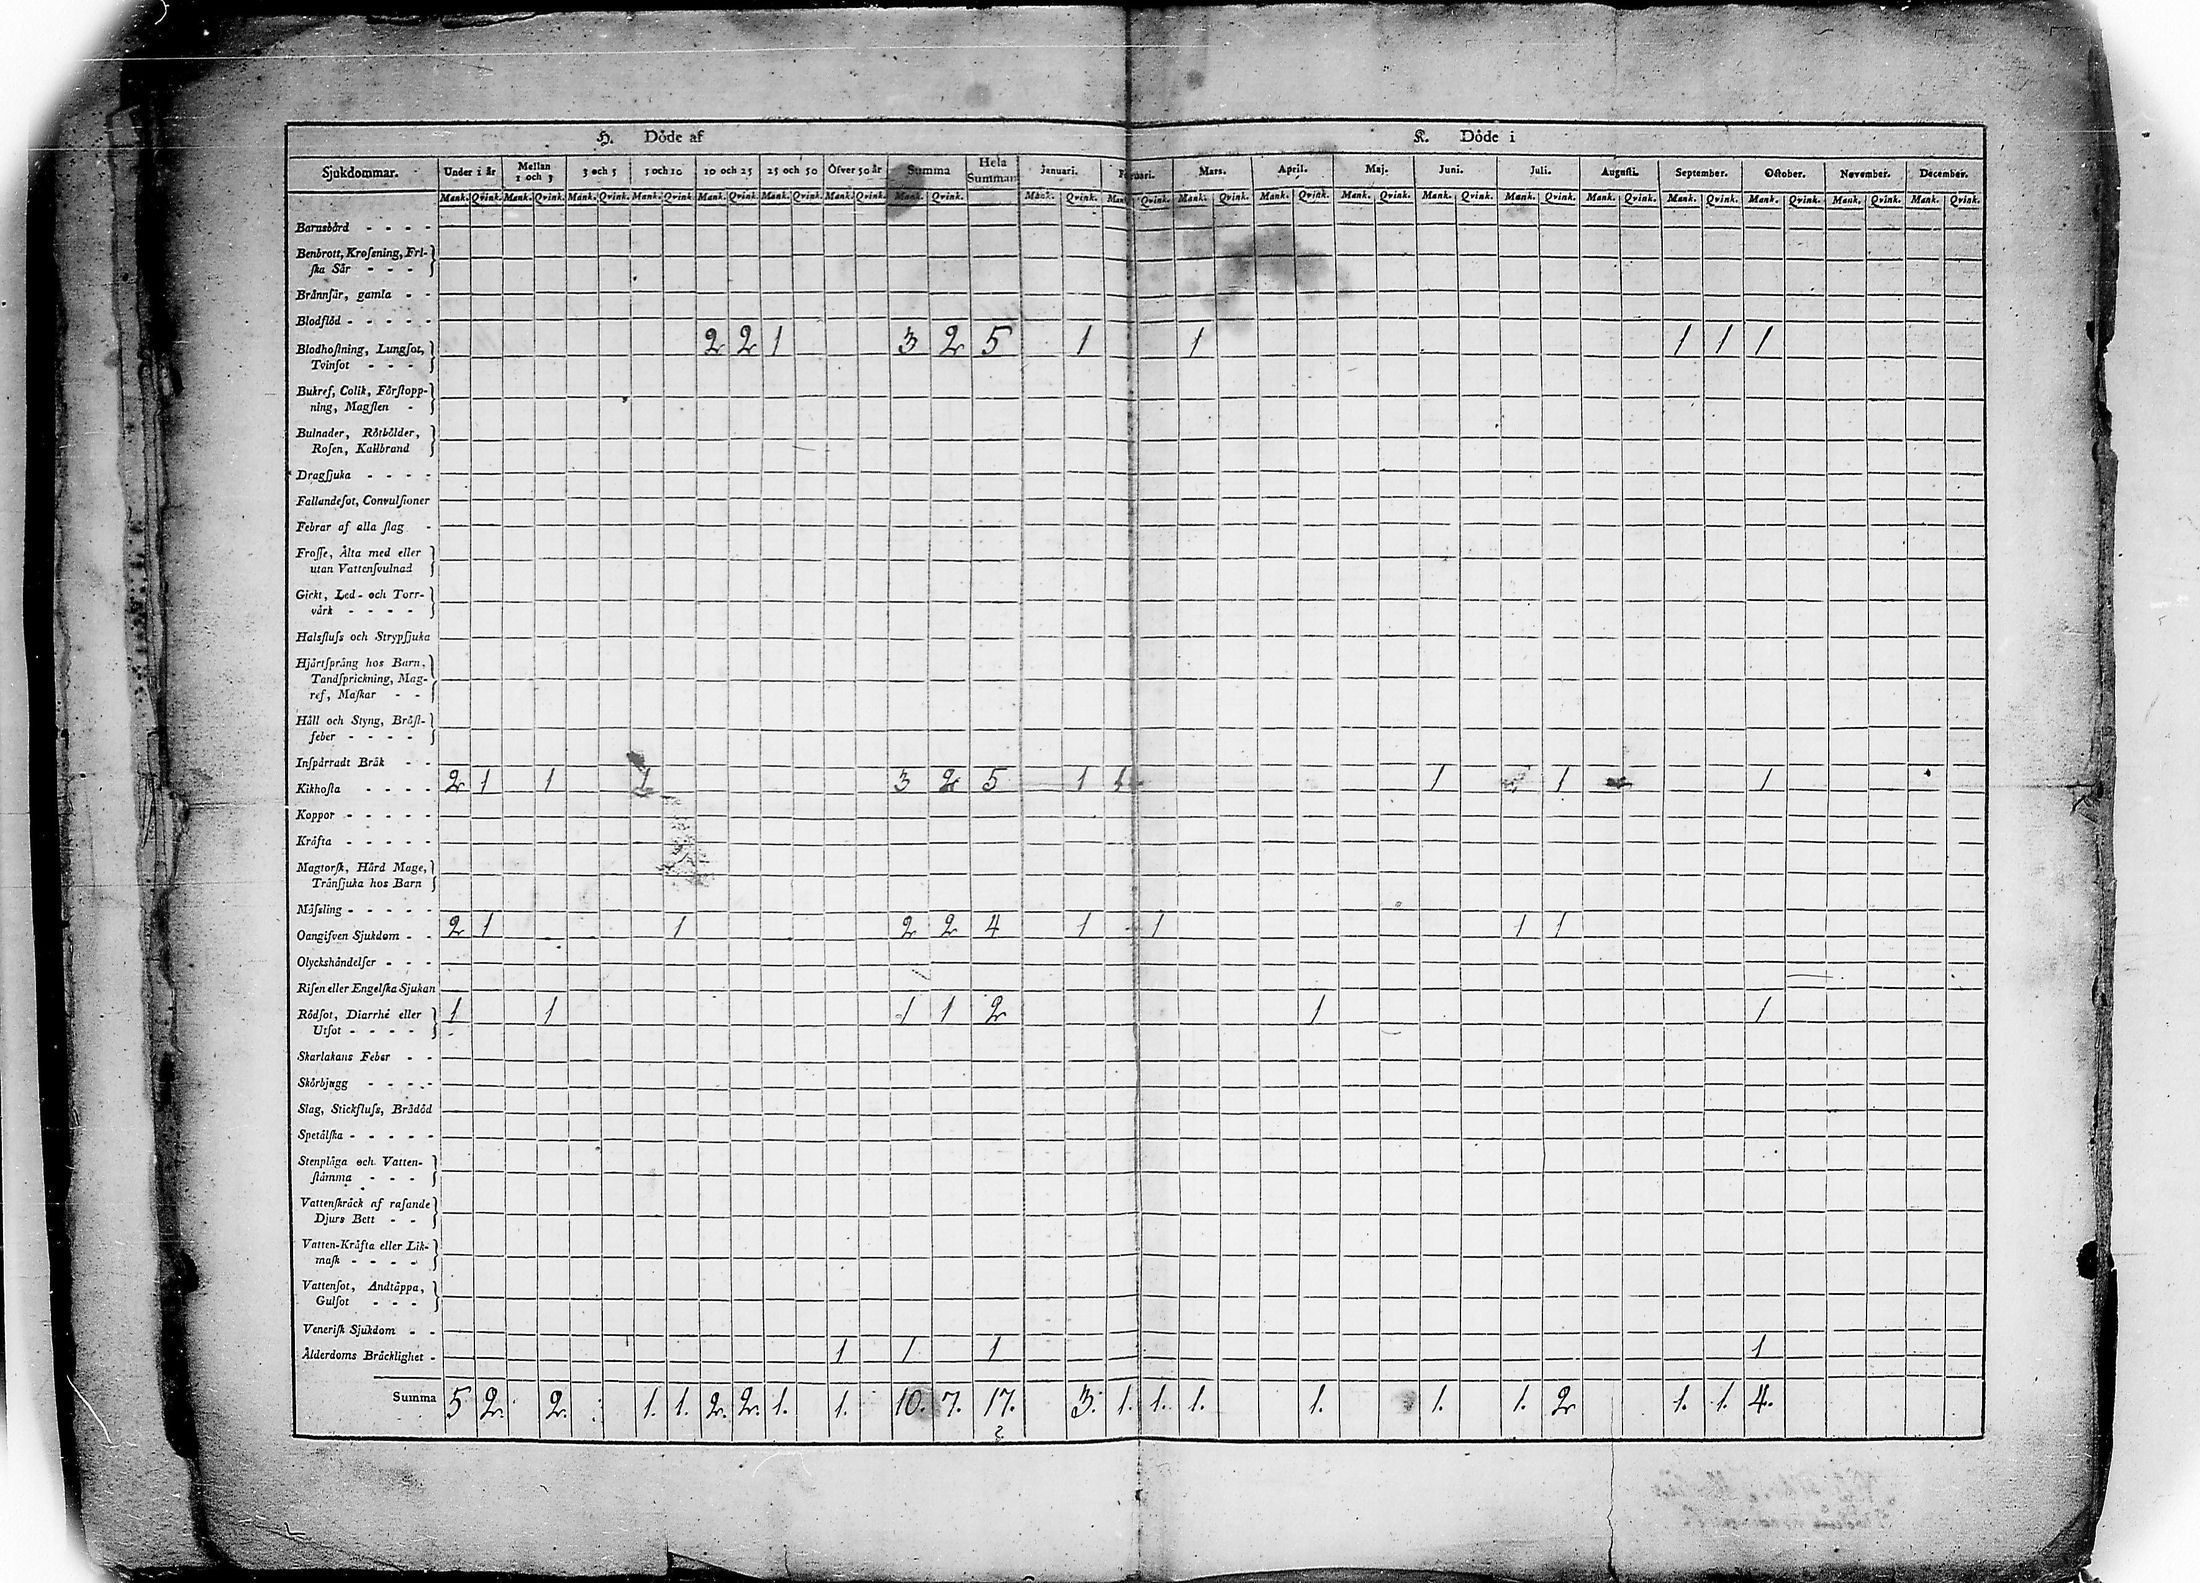 H. Döde af K. Döde i
Sjukdommar. Under 1 år Mellan 1 och 3 3 och 5 5 och 10 10 och 25 25 och 50 Öfver 50 år Summa Hela Summan Januari. Februari. Mars. April. Maj. Juni. Juli. Augusti. September. October. November. December.
Mank. Qvink. Mank. Qvink. Mank. Qvink. Mank. Qvink. Mank. Qvink. Mank. Qvink. Mank. Qvink. Mank. Qvink. Mank. Qvink. Mank. Qvink. Mank. Qvink. Mank. Qvink. Mank. Qvink. Mank. Qvink. Mank. Qvink. Mank. Qvink. Mank. Qvink. Mank. Qvink. Mank. Qvink. Mank. Qvink.
Barnsbörd - - - -
Benbrott, Kroſsning, Fri-
ſka Sår - - -
Brännſår, gamla - -
Blodflöd - - - - -
Blodhoſtning, Lungſot, 2 2 1 3 2 5 1 1 1 1 1
Tvinſot - - -
Bukref, Colik, Förſtopp-
ning, Magſten -
Bulnader, Rötbölder,
Roſen, Kallbrand
Dragſjuka - - - -
Fallandeſot, Convulſioner
Febrar af alla ſlag -
Froſſe, Älta med eller
utan Vattenſvulnad
Gickt, Led- och Torr-
värk - - - -
Halsfluſs och Strypſjuka
Hjärtſprång hos Barn,
Tandſprickning, Mag-
ref, Maſkar - -
Håll och Styng, Bröſt-
feber - - - -
Inſpärradt Bråk - -
Kikhoſta - - - - 2 1 1 1 3 2 5 1 1 1 1 1
Koppor - - - - -
Kräfta - - - - -
Magtorſk, Hård Mage,
Tränſjuka hos Barn
Mäſsling - - - - -
Oangifven Sjukdom - - 2 1 1 2 2 4 1 1 1 1
Olyckshändelſer - - -
Riſen eller Engelſka Sjukan
Rödſot, Diarrhé eller 1 1 1 1 2 1 1
Utſot - - - -
Skarlakans Feber - -
Skörbjugg - - - -
Slag, Stickfluſs, Brådöd
Spetälſka - - - - -
Stenplåga och Vatten-
ſtämma - - - -
Vattenſkräck af raſande
Djurs Bett - -
Vatten-Kräfta eller Lik-
maſk - - - -
Vattenſot, Andtäppa,
Gulſot - - -
Veneriſk Sjukdom - -
Ålderdoms Bräcklighet - 1 1 1 1
Summa 5 2. 2. 1. 1. 2. 2. 1. 1. 10. 7. 17. 3. 1. 1. 1. 1. 1. 1. 2 1. 1. 4.